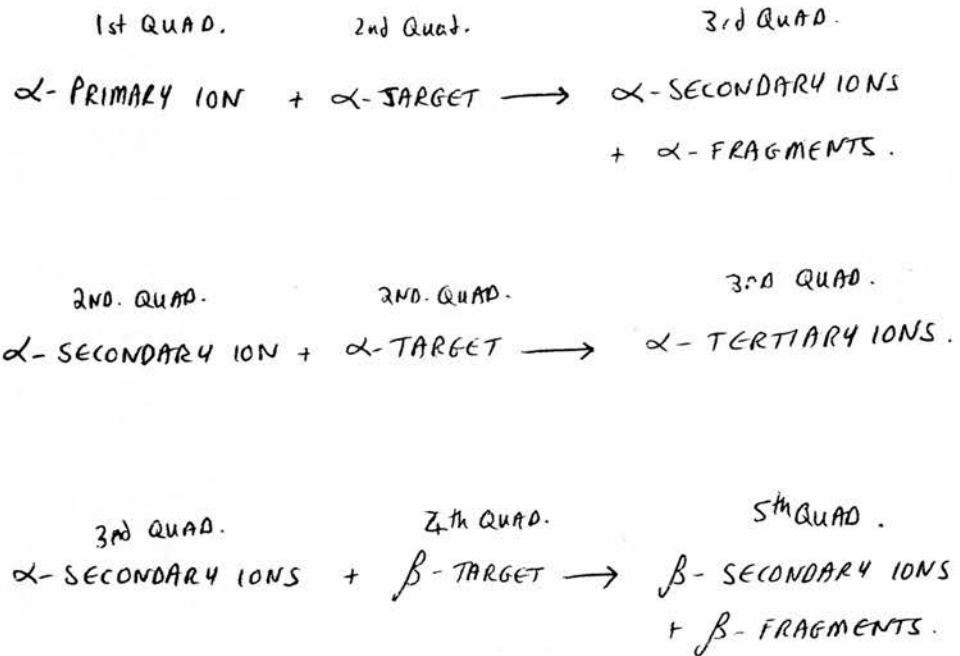 1st QUAD. 2nd Quad. 3rd QUAD.
α-PRIMARY ION + α-TARGET ⟶ α-SECONDARY IONS
+ α-FRAGMENTS.
2ND. QUAD. 2ND. QUAD. 3RD QUAD.
α-SECONDARY ION + α-TARGET ⟶ α-TERTIARY IONS.
3rd QUAD. 4th QUAD. 5th QUAD.
α-SECONDARY IONS + β-TARGET ⟶ β-SECONDARY IONS
+ β-FRAGMENTS.